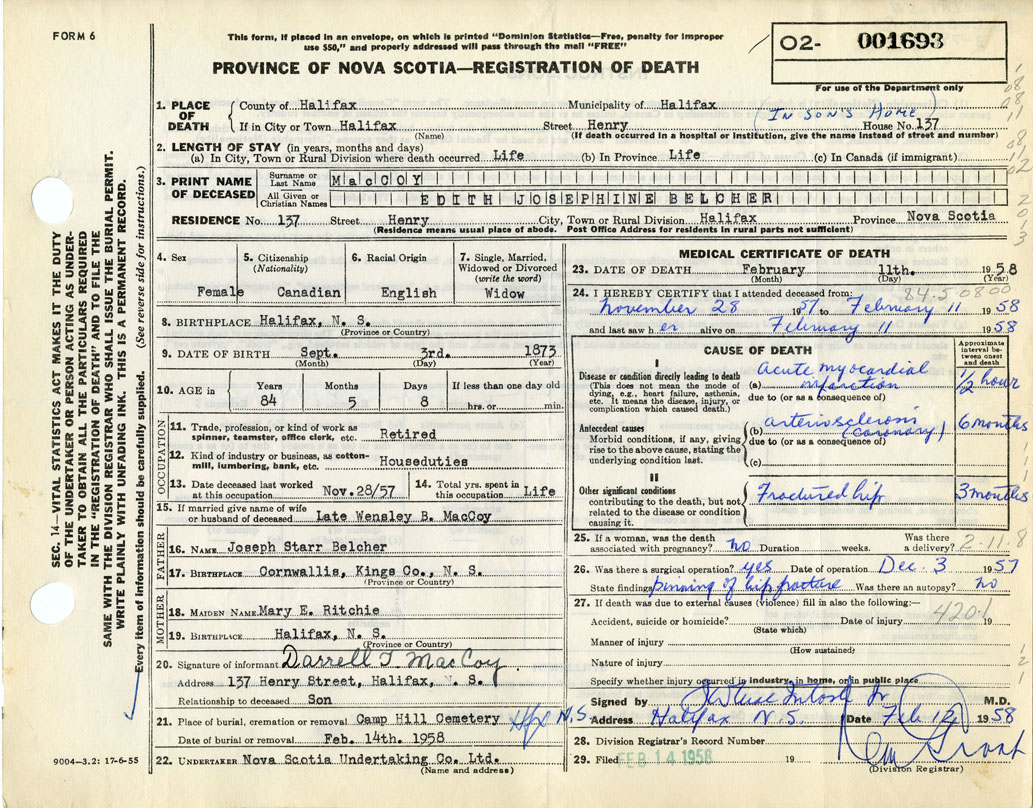 FORM 6
This form, if placed in an envelope, on which is printed "Dominion Statistics—Free, penalty for improper
use $50," and properly addressed will pass through the mail "FREE"
O2- 001693
PROVINCE OF NOVA SCOTIA—REGISTRATION OF DEATH
For use of the Department only
1. PLACE OF DEATH
County of Halifax Municipality of Halifax
(IN SON'S HOME)
If in City or Town Halifax Street Henry House No. 137
(Name) (If death occurred in a hospital or institution, give the name instead of street and number)
2. LENGTH OF STAY (in years, months and days)
(a) In City, Town or Rural Division where death occurred Life (b) In Province Life (c) In Canada (if immigrant)
3. PRINT NAME OF DECEASED
Surname or Last Name MacCOY
All Given or Christian Names EDITH JOSEPHINE BELCHER
RESIDENCE No. 137 Street Henry City, Town or Rural Division Halifax Province Nova Scotia
(Residence means usual place of abode. Post Office Address for residents in rural parts not sufficient)
SEC. 14—VITAL STATISTICS ACT MAKES IT THE DUTY
OF THE UNDERTAKER OR PERSON ACTING AS UNDER-
TAKER TO OBTAIN ALL THE PARTICULARS REQUIRED
IN THE "REGISTRATION OF DEATH" AND TO FILE THE
SAME WITH THE DIVISION REGISTRAR WHO SHALL ISSUE THE BURIAL PERMIT.
WRITE PLAINLY WITH UNFADING INK. THIS IS A PERMANENT RECORD.
Every item of information should be carefully supplied. (See reverse side for instructions.)
4. Sex
Female
5. Citizenship
(Nationality)
Canadian
6. Racial Origin
English
7. Single, Married,
Widowed or Divorced
(write the word)
Widow
8. BIRTHPLACE Halifax, N. S.
(Province or Country)
9. DATE OF BIRTH Sept. 3rd. 1873
(Month) (Day) (Year)
10. AGE in
Years Months Days If less than one day old
84 5 8 hrs. or min.
OCCUPATION
11. Trade, profession, or kind of work as
spinner, teamster, office clerk, etc. Retired
12. Kind of industry or business, as cotton-
mill, lumbering, bank, etc. Houseduties
13. Date deceased last worked
at this occupation Nov.28/57
14. Total yrs. spent in
this occupation Life
15. If married give name of wife
or husband of deceased Late Wensley B. MacCoy
FATHER
16. NAME Joseph Starr Belcher
17. BIRTHPLACE Cornwallis, Kings Co., N. S.
(Province or Country)
MOTHER
18. MAIDEN NAME Mary E. Ritchie
19. BIRTHPLACE Halifax, N. S.
(Province or Country)
20. Signature of informant Darrell T. MacCoy
Address 137 Henry Street, Halifax, N. S.
Relationship to deceased Son
21. Place of burial, cremation or removal Camp Hill Cemetery Hfx N.S.
Date of burial or removal Feb. 14th. 1958
22. UNDERTAKER Nova Scotia Undertaking Co. Ltd.
(Name and address)
9004—3.2: 17-6-55
MEDICAL CERTIFICATE OF DEATH
23. DATE OF DEATH February 11th. 1958
(Month) (Day) (Year)
84-5 08 00
24. I HEREBY CERTIFY that I attended deceased from:
November 28 1957 to February 11 1958
and last saw her alive on February 11 1958
CAUSE OF DEATH
Approximate
interval be-
tween onset
and death
I
Disease or condition directly leading to death
(This does not mean the mode of
dying, e.g., heart failure, asthenia,
etc. It means the disease, injury, or
complication which caused death.)
(a) Acute myocardial infarction 1/2 hour
due to (or as a consequence of)
Antecedent causes
Morbid conditions, if any, giving
rise to the above cause, stating the
underlying condition last.
(b) arteriosclerosis (coronary) 6 months
due to (or as a consequence of)
(c)
II
Other significant conditions
contributing to the death, but not
related to the disease or condition
causing it.
Fractured hip 3 months
25. If a woman, was the death
associated with pregnancy? no Duration weeks.
Was there
a delivery?
2-11-8
26. Was there a surgical operation? yes Date of operation Dec. 3 1957
State findings pinning of hip fracture Was there an autopsy? no
27. If death was due to external causes (violence) fill in also the following:—
420.1
Accident, suicide or homicide? Date of injury 19
(State which)
Manner of injury
(How sustained)
Nature of injury
Specify whether injury occurred in industry, in home, or in public place
Signed by M.D.
Address Halifax N.S. Date Feb 12 1958
28. Division Registrar's Record Number
29. Filed FEB 14 1958 19
(Division Registrar)